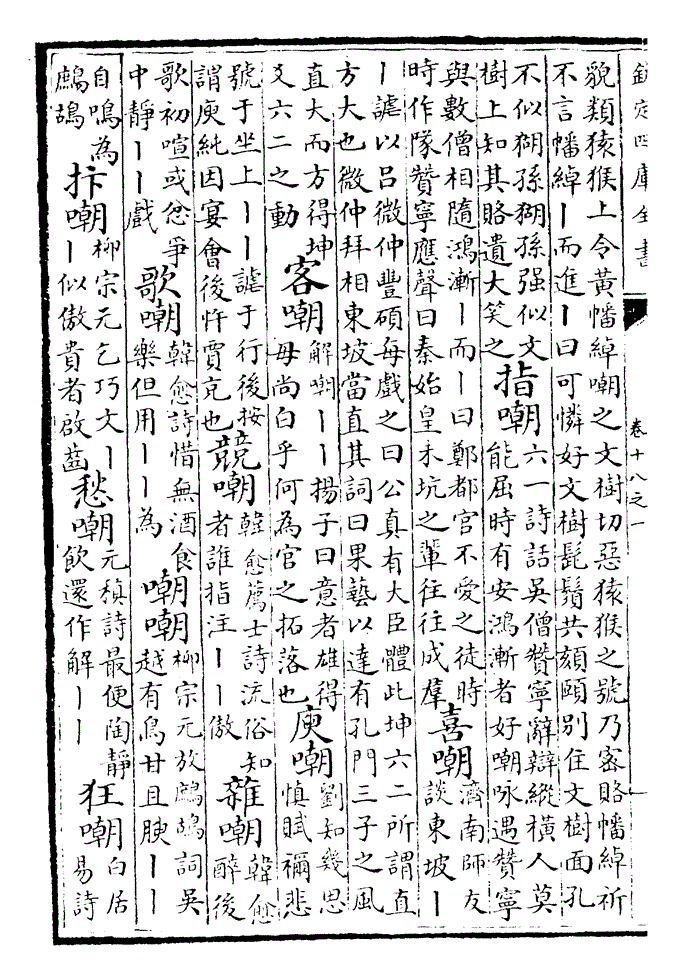 欽定四庫全書 卷十八之一
貌類猿猴上令黃幡綽嘲之文樹切惡猿猴之號乃宻賂幡綽祈
不言幡綽丨而進丨曰可憐好文樹髭鬚共頦頤别住文樹面孔
不似猢孫猢孫强似文
樹上知其賂遺大笑之
指嘲
六一詩話吳僧贊寧辭辯縱橫人莫
能屈時有安鴻漸者好嘲咏遇贊寧
與數僧相隨鴻漸丨而丨曰鄭都官不愛之徒時
時作隊贊寧應聲曰秦始皇未坑之輩往往成羣
喜嘲
濟南師友
談東坡丨
丨謔以吕微仲豐碩每戲之曰公真有大臣體此坤六二所謂直
方大也微仲拜相東坡當直其詞曰果藝以達有孔門三子之風
直大而方得坤
爻六二之動
客嘲
解嘲丨丨揚子曰意者雄得
毋尚白乎何為官之拓落也
庾嘲
劉知幾思
慎賦禰悲
號于坐上丨丨謔于行後按
謂庾純因宴會後忤賈充也
競嘲
韓愈薦士詩流俗知
者誰指注丨丨傲
雜嘲
韓愈
醉後
歌初喧或忿爭
中靜丨丨戲
歌嘲
韓愈詩惜無酒食
樂但用丨丨為
嘲嘲
柳宗元放鷓鴣詞吳
越有鳥甘且腴丨丨
自鳴為
鷓鴣
抃嘲
柳宗元乞巧文丨
丨似傲貴者啟齒
愁嘲
元稹詩最便陶靜
飲還作解丨丨
狂嘲
白居
易詩